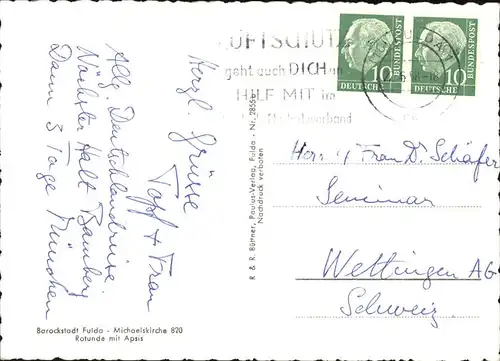 Allg. Deutschlandreise
Nächster Halt Bamberg
Dann 3 Tage München
Herzl. Grüsse
Topf + Frau
Barockstadt Fulda - Michaelskirche 820
Rotunde mit Apsis
R & R. Büttner, Paulus-Verlag, Fulda - Nr. 2855
Nachdruck verboten
LUFTSCHUTZ
geht auch DICH an
HILF MIT im
10 DEUTSCHE BUNDESPOST
10 DEUTSCHE BUNDESPOST
Herr u Frau Dr. Schäfer
Seminar
Wettingen AG
Schweiz.